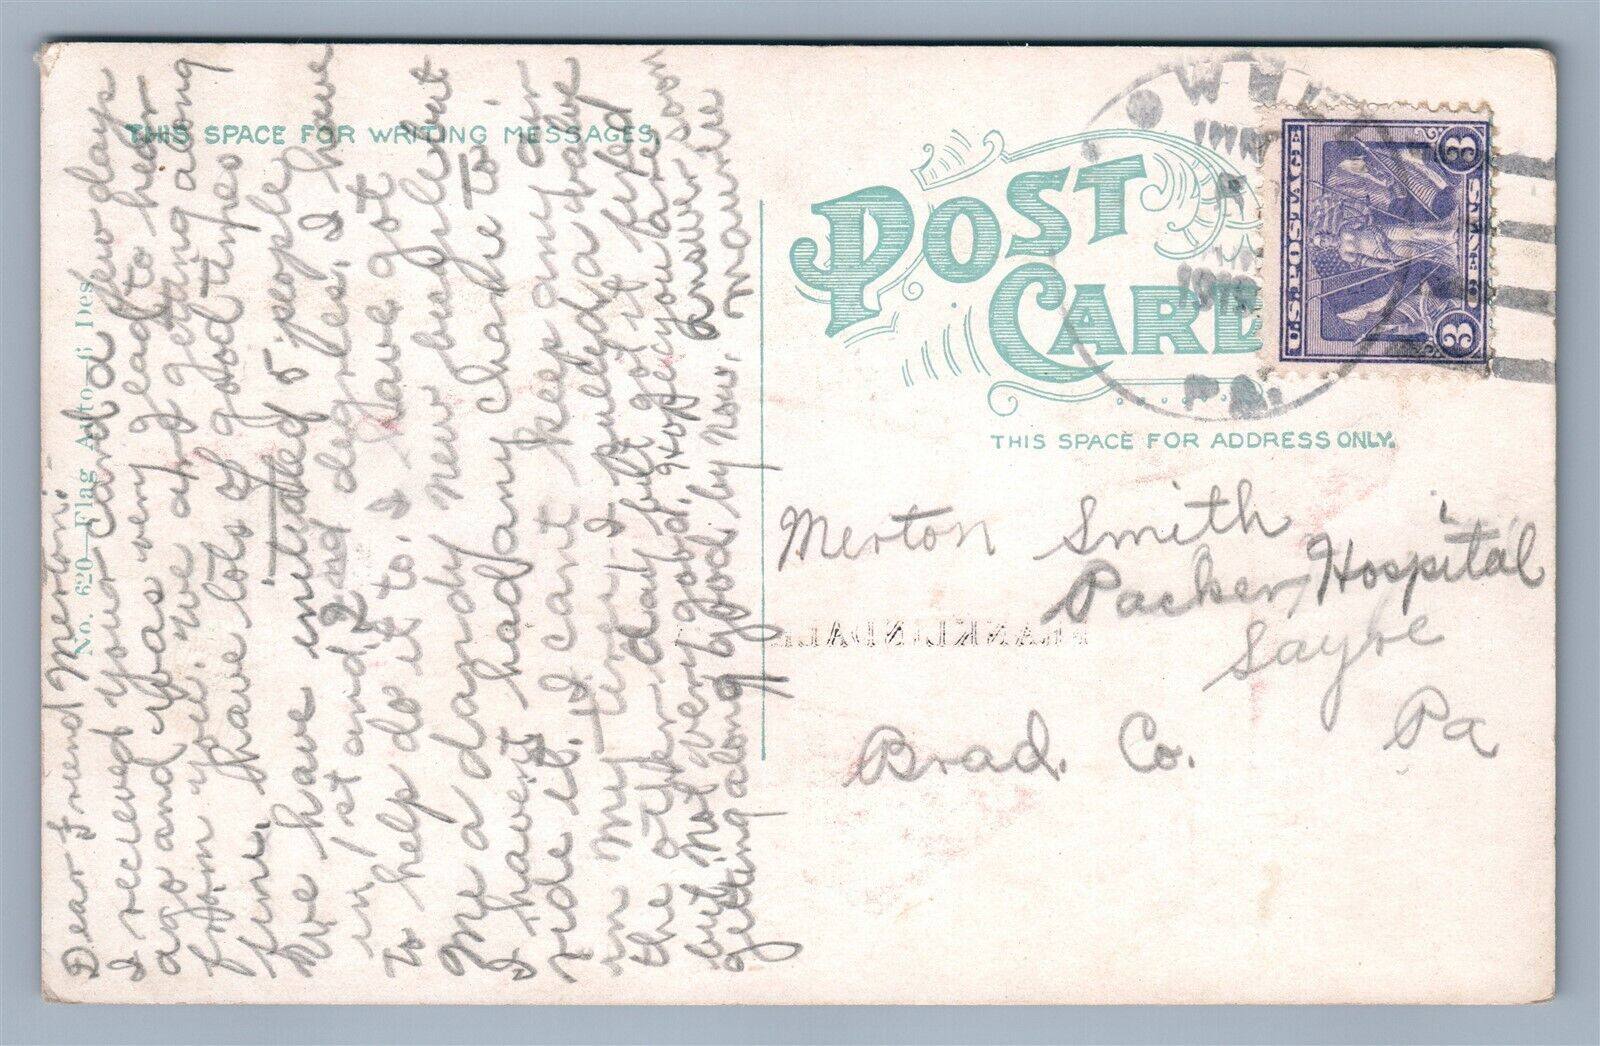 THIS SPACE FOR WRITING MESSAGES.
No. 620—Flag Auto—6 Des.
Dear Friend Merton:
I recieved your card a few days
ago and was very glad to hear
from you. We are getting along
fine, have lots of good times
We have initiated 5 people
in 1st and 2nd degrees. I have
to help do it to. I have got
Me a dandy new bugle but
I havent had any chanhe to.
ride it. I cant keep any air
in My tire. I pulled a valve
the other day but got it fixed
but not very good. Hope you are soon
getting along good. by now. Answer soon
Maurice
POST CARD
THIS SPACE FOR ADDRESS ONLY.
1919
PA.
U.S. POSTAGE
3 CENTS 3
Merton Smith
Packer Hospital
Sayre
Brad. Co. Pa